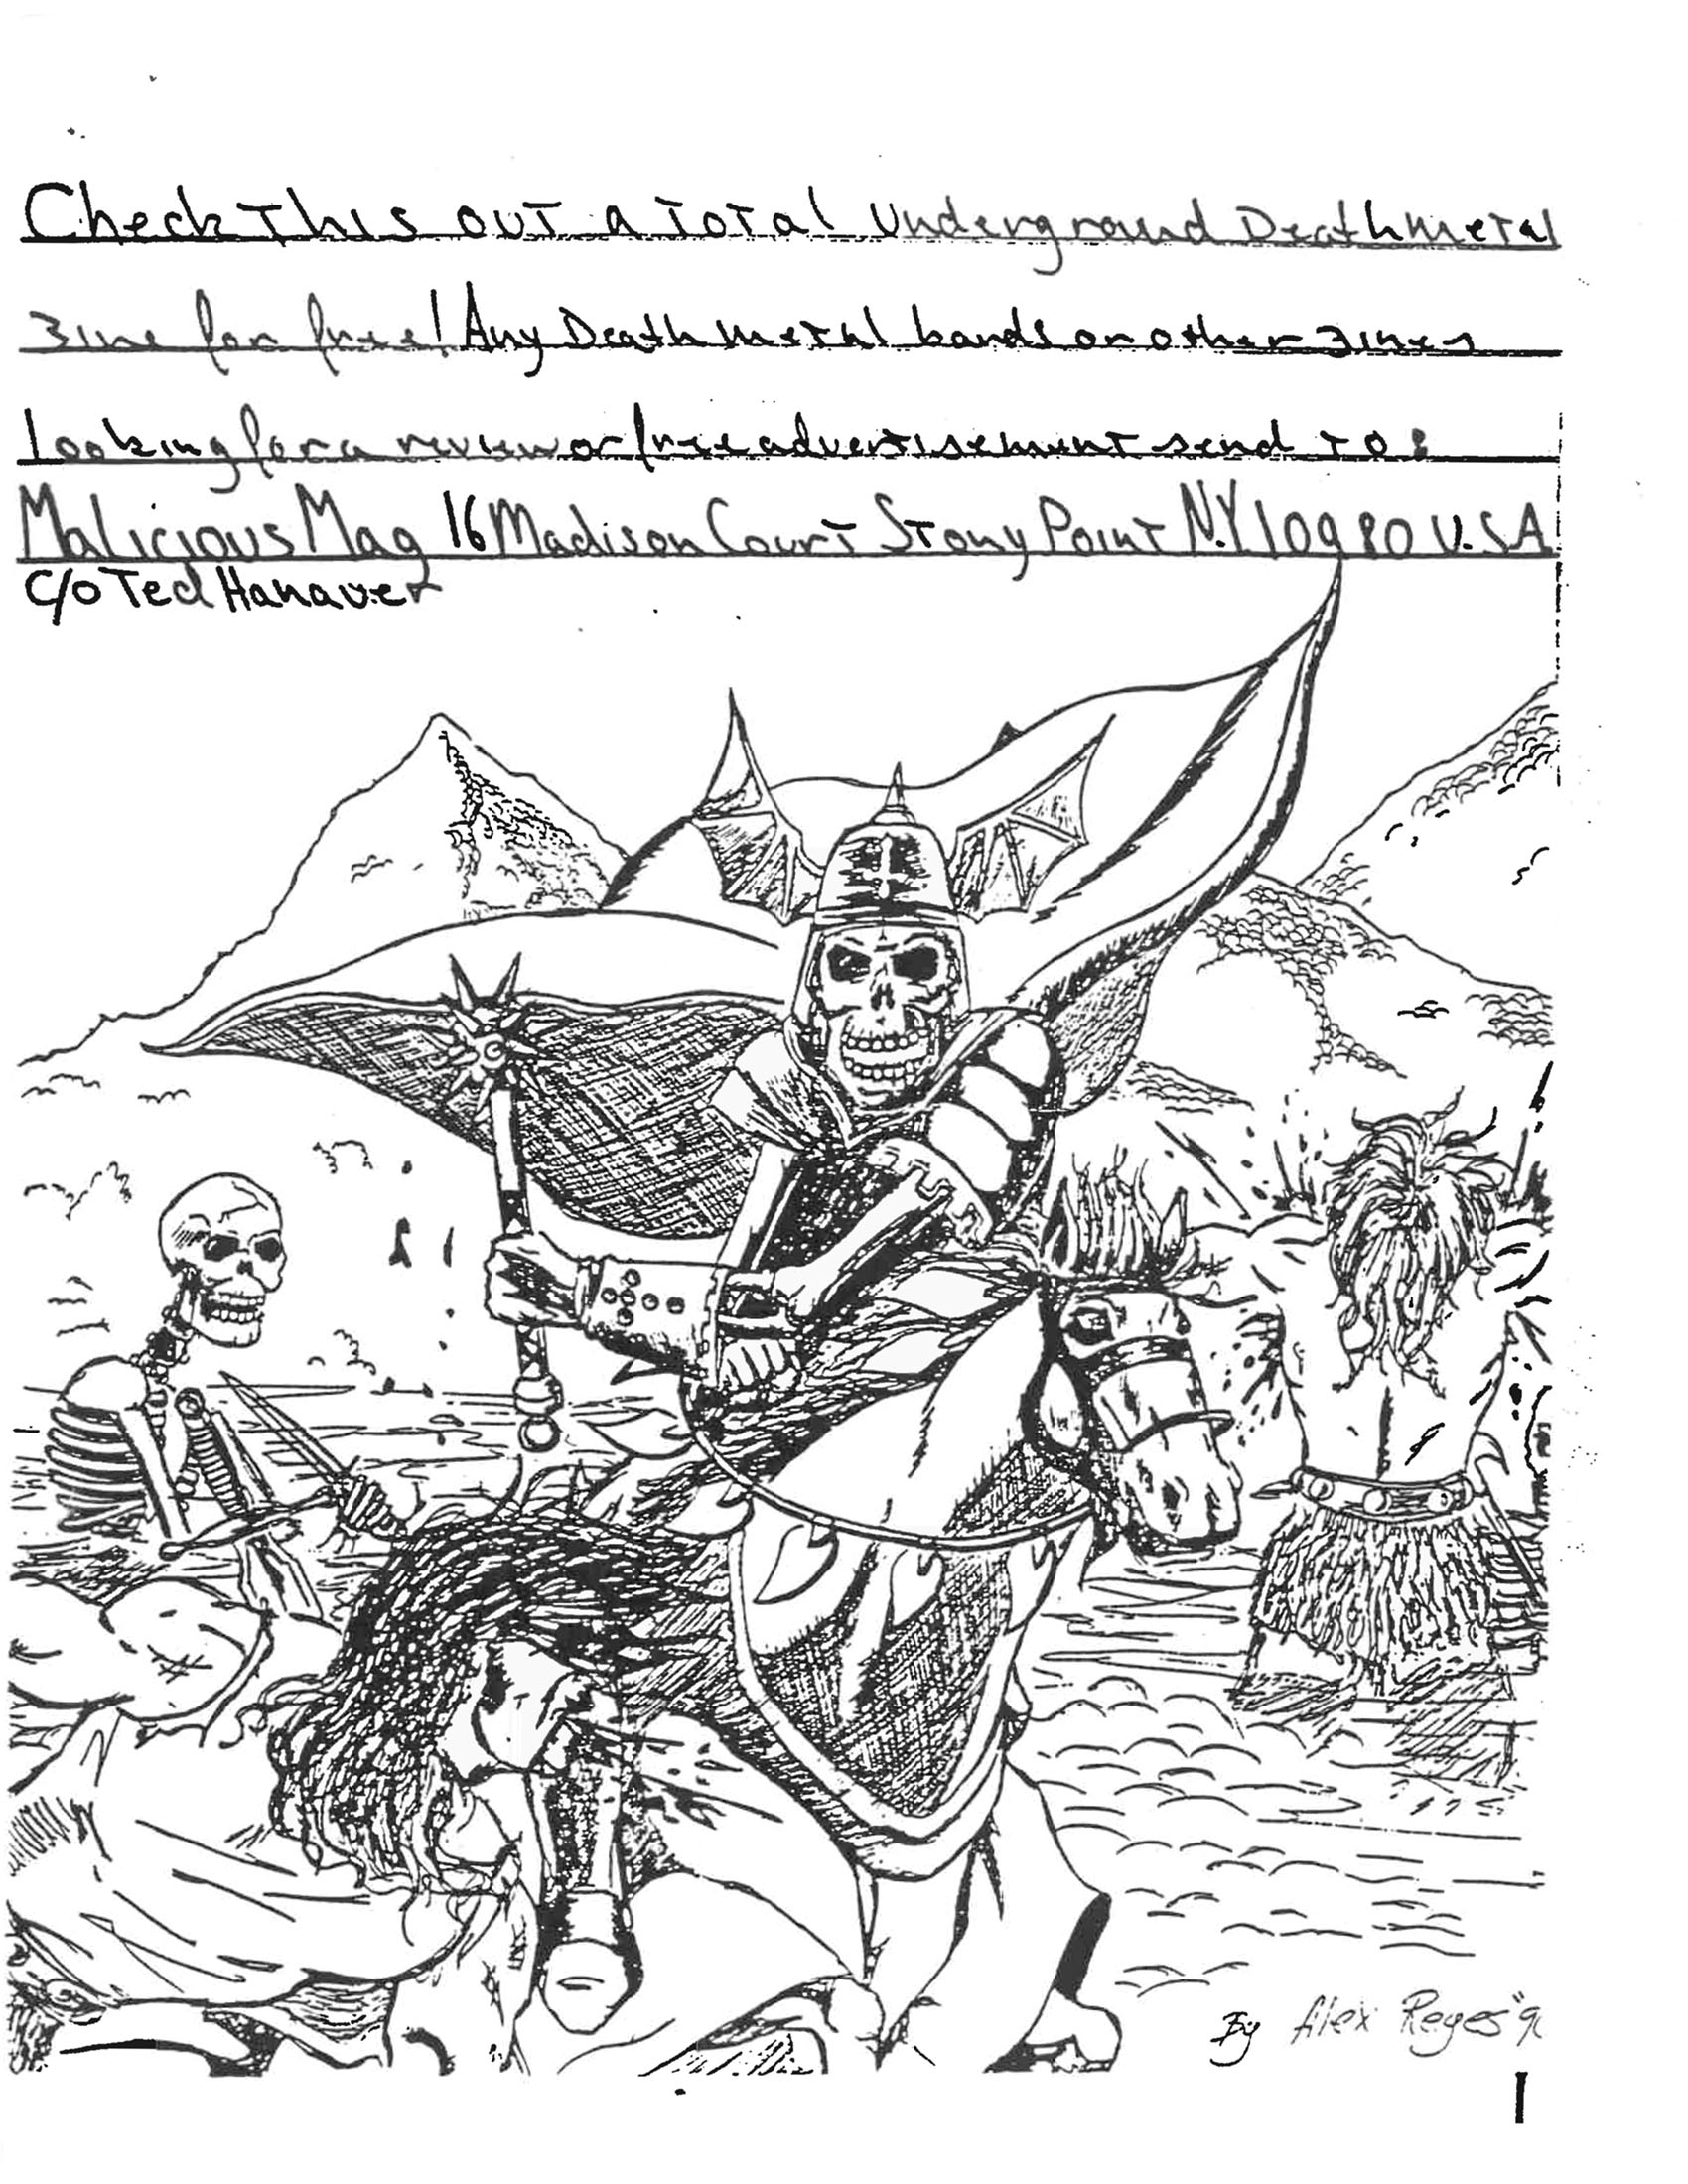 Check This out a Total Underground Death metal
Zine for free! Any Death metal bands or other zines
Looking for a review or free advertisement send to:
Malicious Mag 16 Madison Court Stony Point N.Y. 10980 U.S.A
C/O Ted Hanauer
By Alex Reyes "9
1